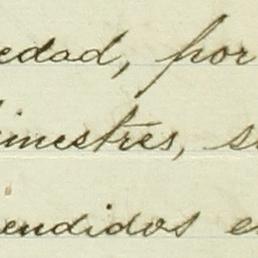 edad, por
imestres, s
endidos e